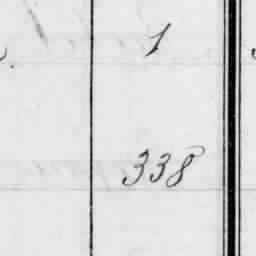 1
338